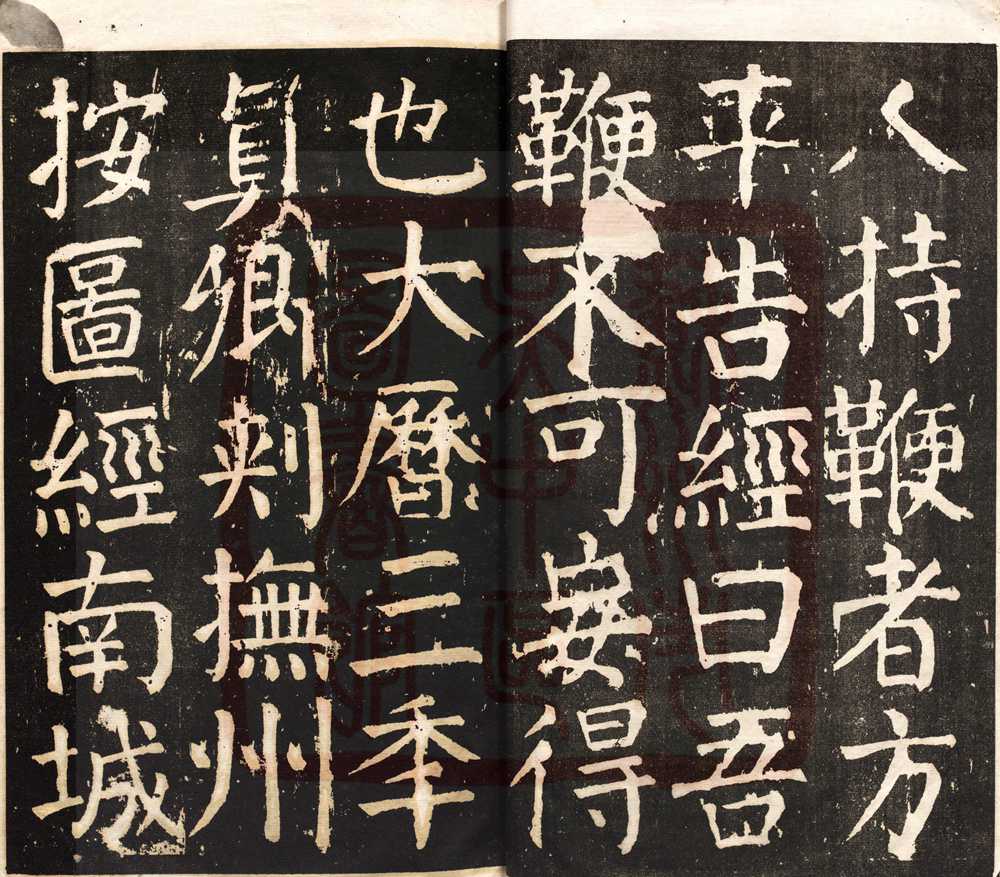 人持鞭者方
平告經曰吾
鞭不可妄得
也大曆三年
真卿刺撫州
按圖經南城